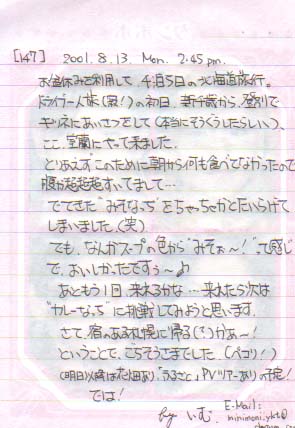 [147] 2001. 8. 13. Mon. 2:45 pm.
お盆休みを利用して 4泊5日の北海道旅行。
ドライブ一人旅(寂!)の初日、新千歳から、登別で
キツネにあいさつをして(本当にそうぐうしたらしい)、
ここ、室蘭にやって来ました。
とりあえず このために朝から何も食べてなかったので
腹が超超超すいてまして…
でてきた"みそなっち"をちゃっちゃかとたいらげて
しまいました。(笑)
でも、なんかスープの色から"みそぉ〜!"って感じ
で、おいしかったですぅ〜♪
あともう1回 来れるかな…来れたら次は
"カレーなっち"に挑戦してみようと思います。
さて、宿のある札幌に帰る(?)かぁ〜!
ということで、ごちそうさまでした。(ペコリ!)
(明日以降は花畑あり"ふるさと"PVツアーありの予定!
では!
by いむ.
E-Mail:
minimoni.ykt@